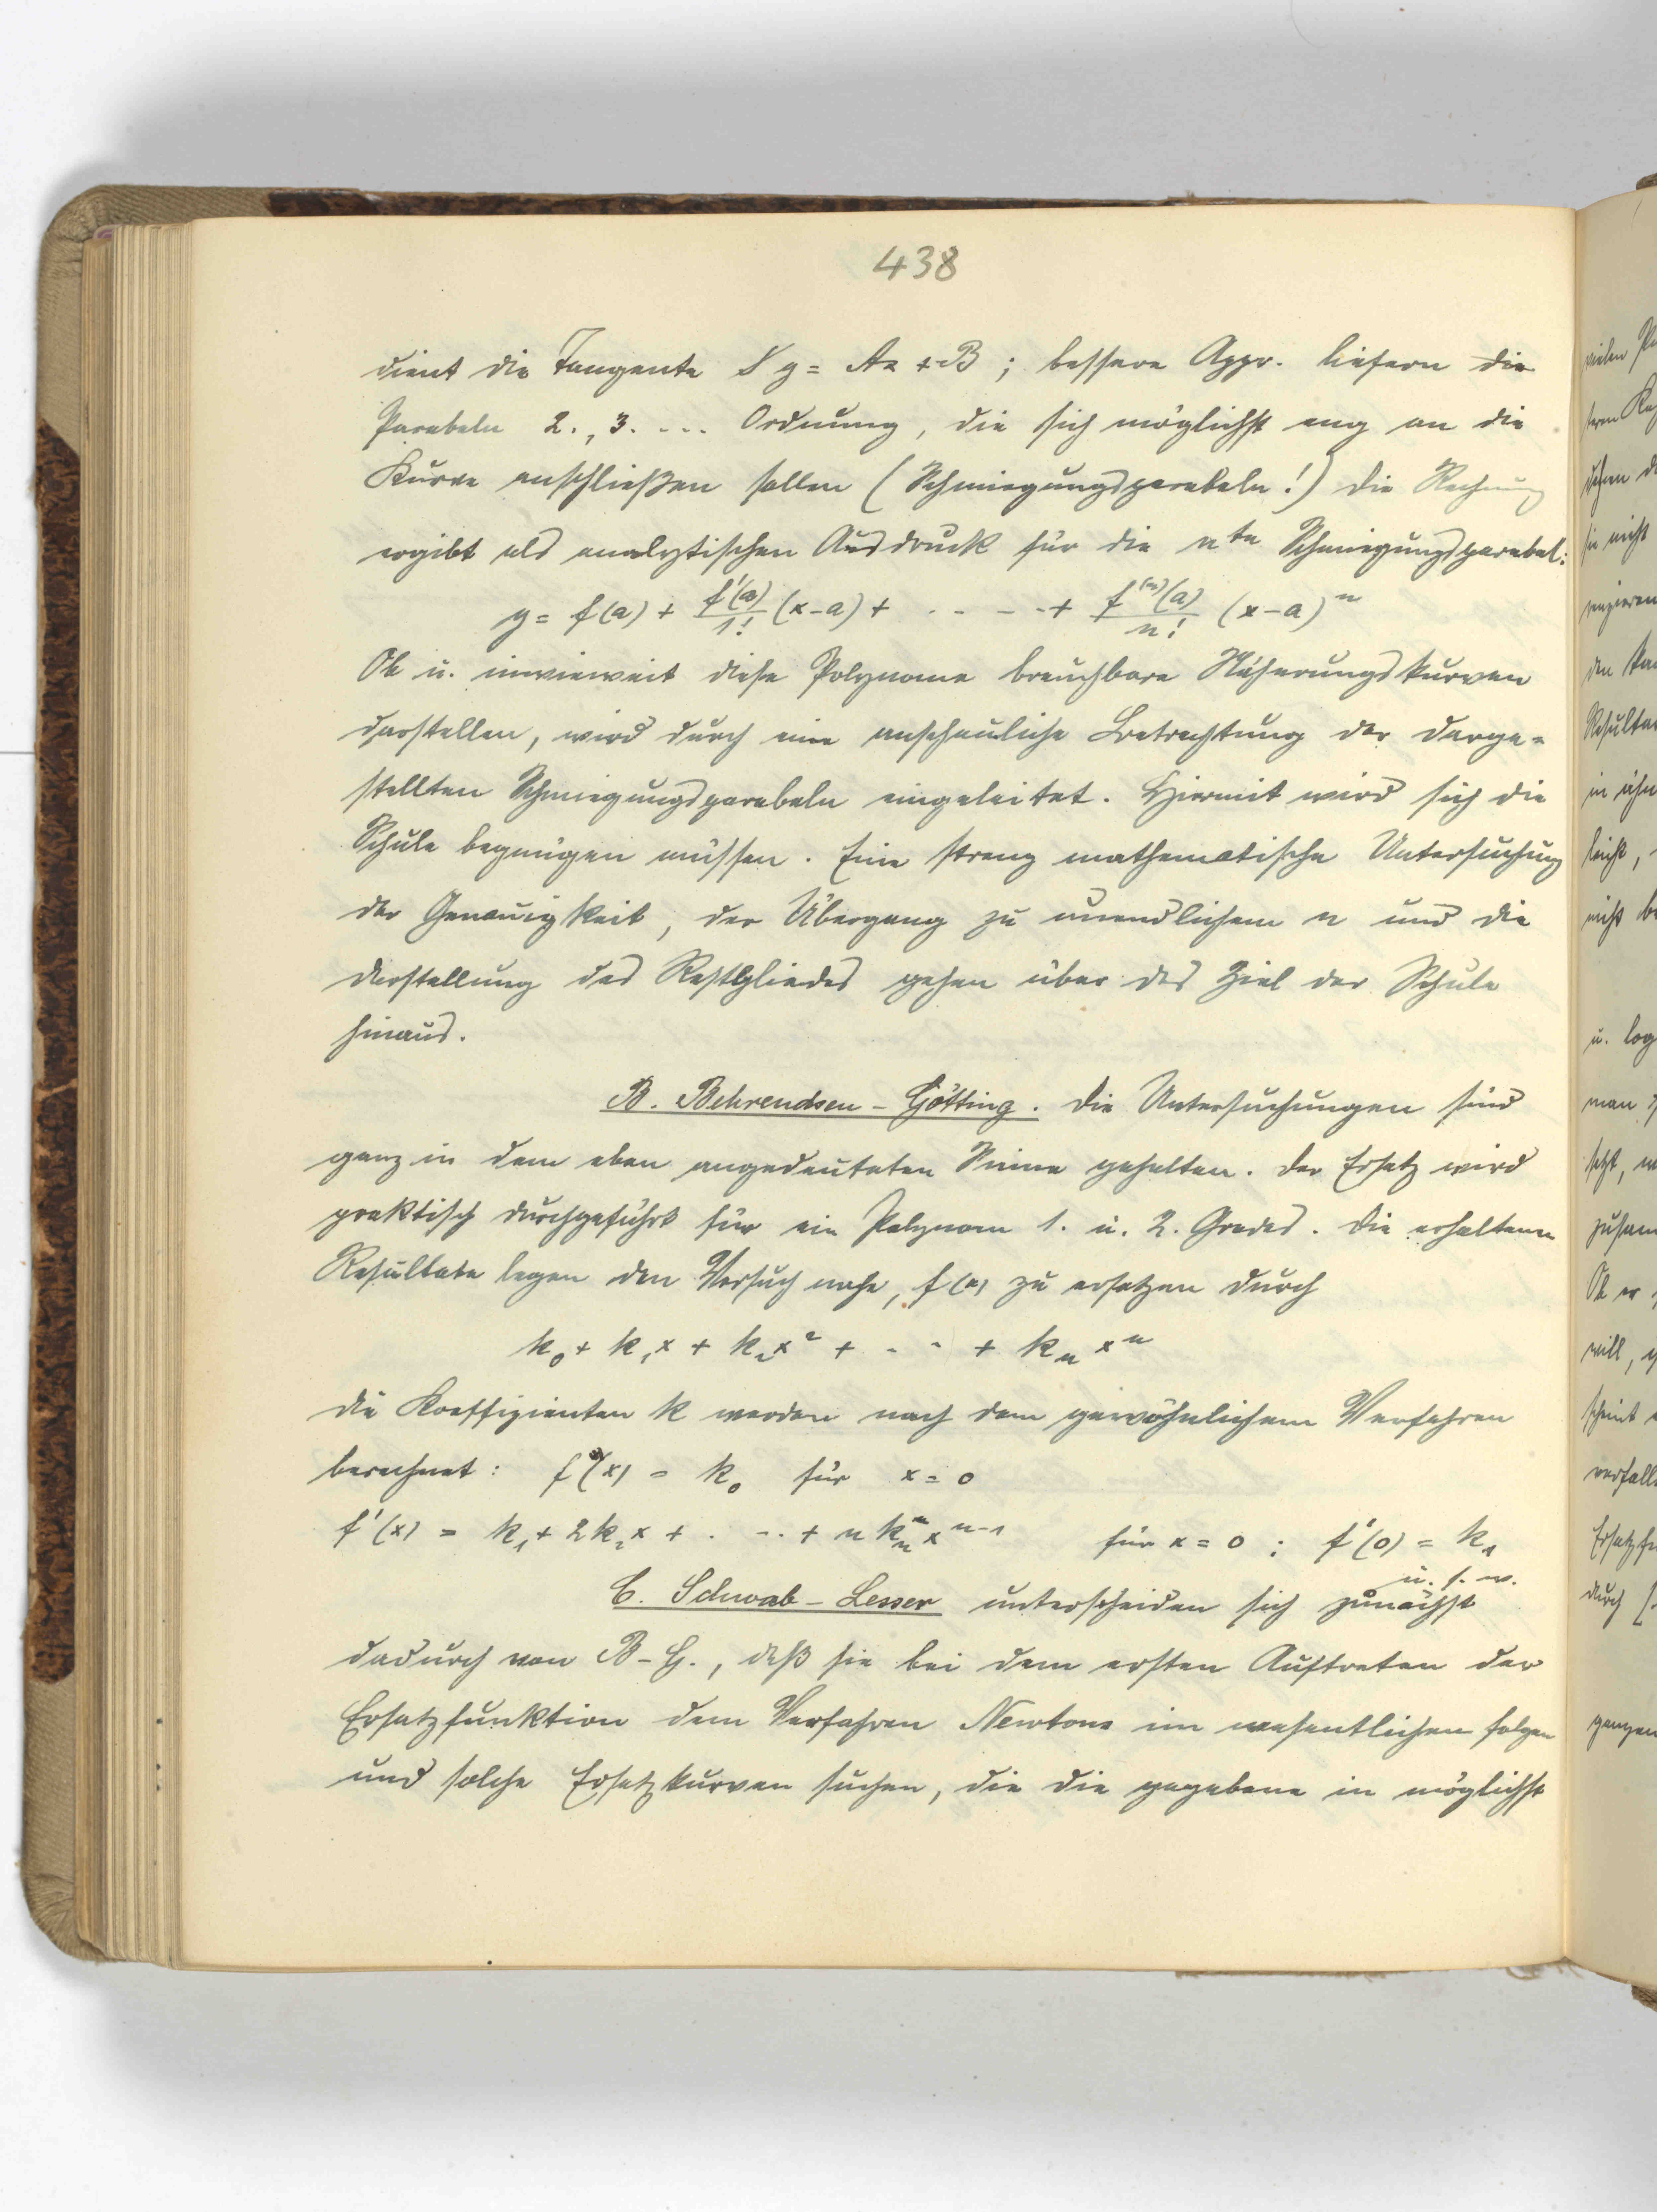 438
dient die Tangente y = Ax + B ; bessere Appr. liefern die
Parabeln 2., 3. ... Ordnung, die sich möglichst eng an die
Kurve anschließen sollen (Schmiegungsparabeln!) Die Rechnung
ergibt als analytischen Ausdruck für die nte Schmiegungsparabel:
y = f(a) + f'(a)/1! (x-a) + . - - - + f^(n)(a)/n! (x-a)^n
Ob u. inwieweit diese Polynome brauchbare Näherungskurven
darstellen, wird durch eine anschauliche Betrachtung der darge=
stellten Schmiegungsparabeln eingeleitet. Hiermit wird sich die
Schule begnügen müssen. Eine streng mathematische Untersuchung
der Genauigkeit, der Übergang zu unendlichem n und die
Darstellung des Restgliedes gehen über das Ziel der Schule
hinaus.
B. Behrendsen - Götting. Die Untersuchungen sind
ganz in dem eben angedeuteten Sinne gehalten. Der Ersatz wird
praktisch durchgeführt für ein Polynom 1. u. 2. Grades. Die erhaltenen
Resultate legen den Versuch nahe, f(x) zu ersetzen durch
k₀ + k₁x + k₂x² + . - - + kₙxⁿ
Die Koeffizienten k werden nach dem gewöhnlichem Verfahren
berechnet: f(x) = k₀ für x = 0
f'(x) = k₁ + 2k₂x + . - . . + n kₙ x^n-1 für x = 0 : f'(0) = k₁
u. s. w.
C. Schwab - Lesser unterscheiden sich zunächst
dadurch von B-G., daß sie bei dem ersten Auftreten der
Ersatzfunktion dem Verfahren Newtons im wesentlichen folgen
und solche Ersatzkurven suchen, die die gegebene in möglichst